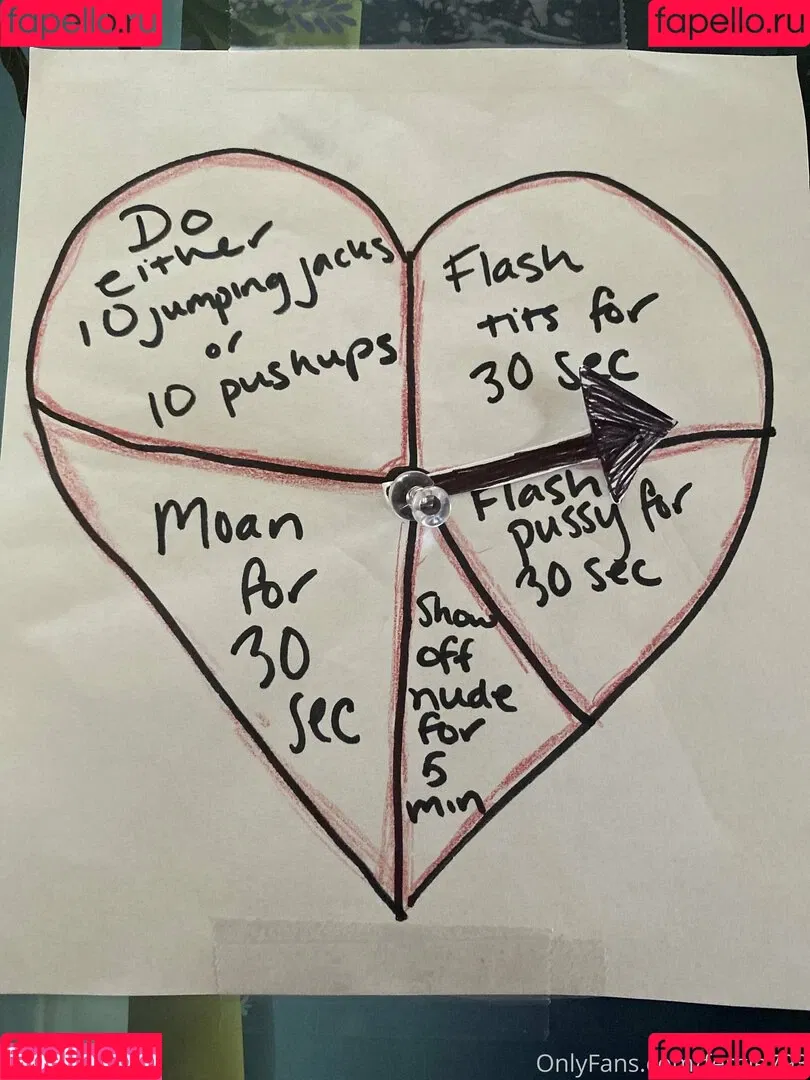 fapello.ru
fapello.ru
Do
either
10 jumping jacks
or
10 pushups
Flash
tits for
30 sec
Flash
pussy for
30 sec
Moan
for
30
sec
Show
off
nude
for
5
min
fapello.ru
OnlyFans.com
fapello.ru